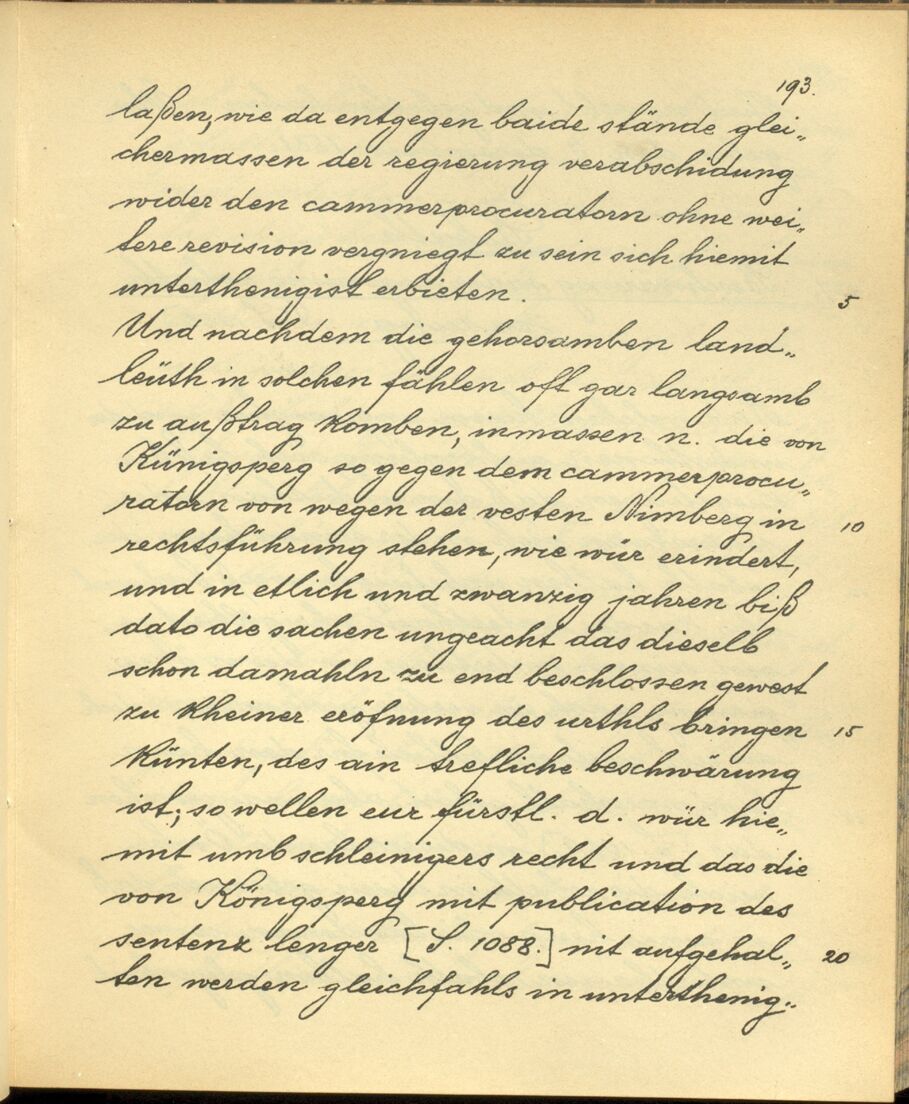 193.
laßen, wie da entgegen baide stände glei„
chermassen der regierung verabschidung
wider den cammerprocuratorn ohne wei„
tere revision vergniegt zu sein sich hiemit
unterthenigist erbieten. 5
Und nachdem die gehorsamben land„
leüth in solchen fählen oft gar langsamb
zu außtrag komben, inmassen n. die von
Künigsperg so gegen dem cammerprocu„
ratorn von wegen der vesten Nimberg in 10
rechtsführung stehen, wie wür erindert,
und in etlich und zwanzig jahren biß
dato die sachen ungeacht das dieselb
schon damahln zu end beschlossen gewest
zu kheiner eröfnung des urthls bringen 15
künten, des ain trefliche beschwärung
ist; so wellen eur fürstl. d. wür hie„
mit umb schleinigers recht und das die
von Königsperg mit publication des
sentenz lenger [S. 1088.] nit aufgehal„ 20
ten werden gleichfahls in unterthenig„